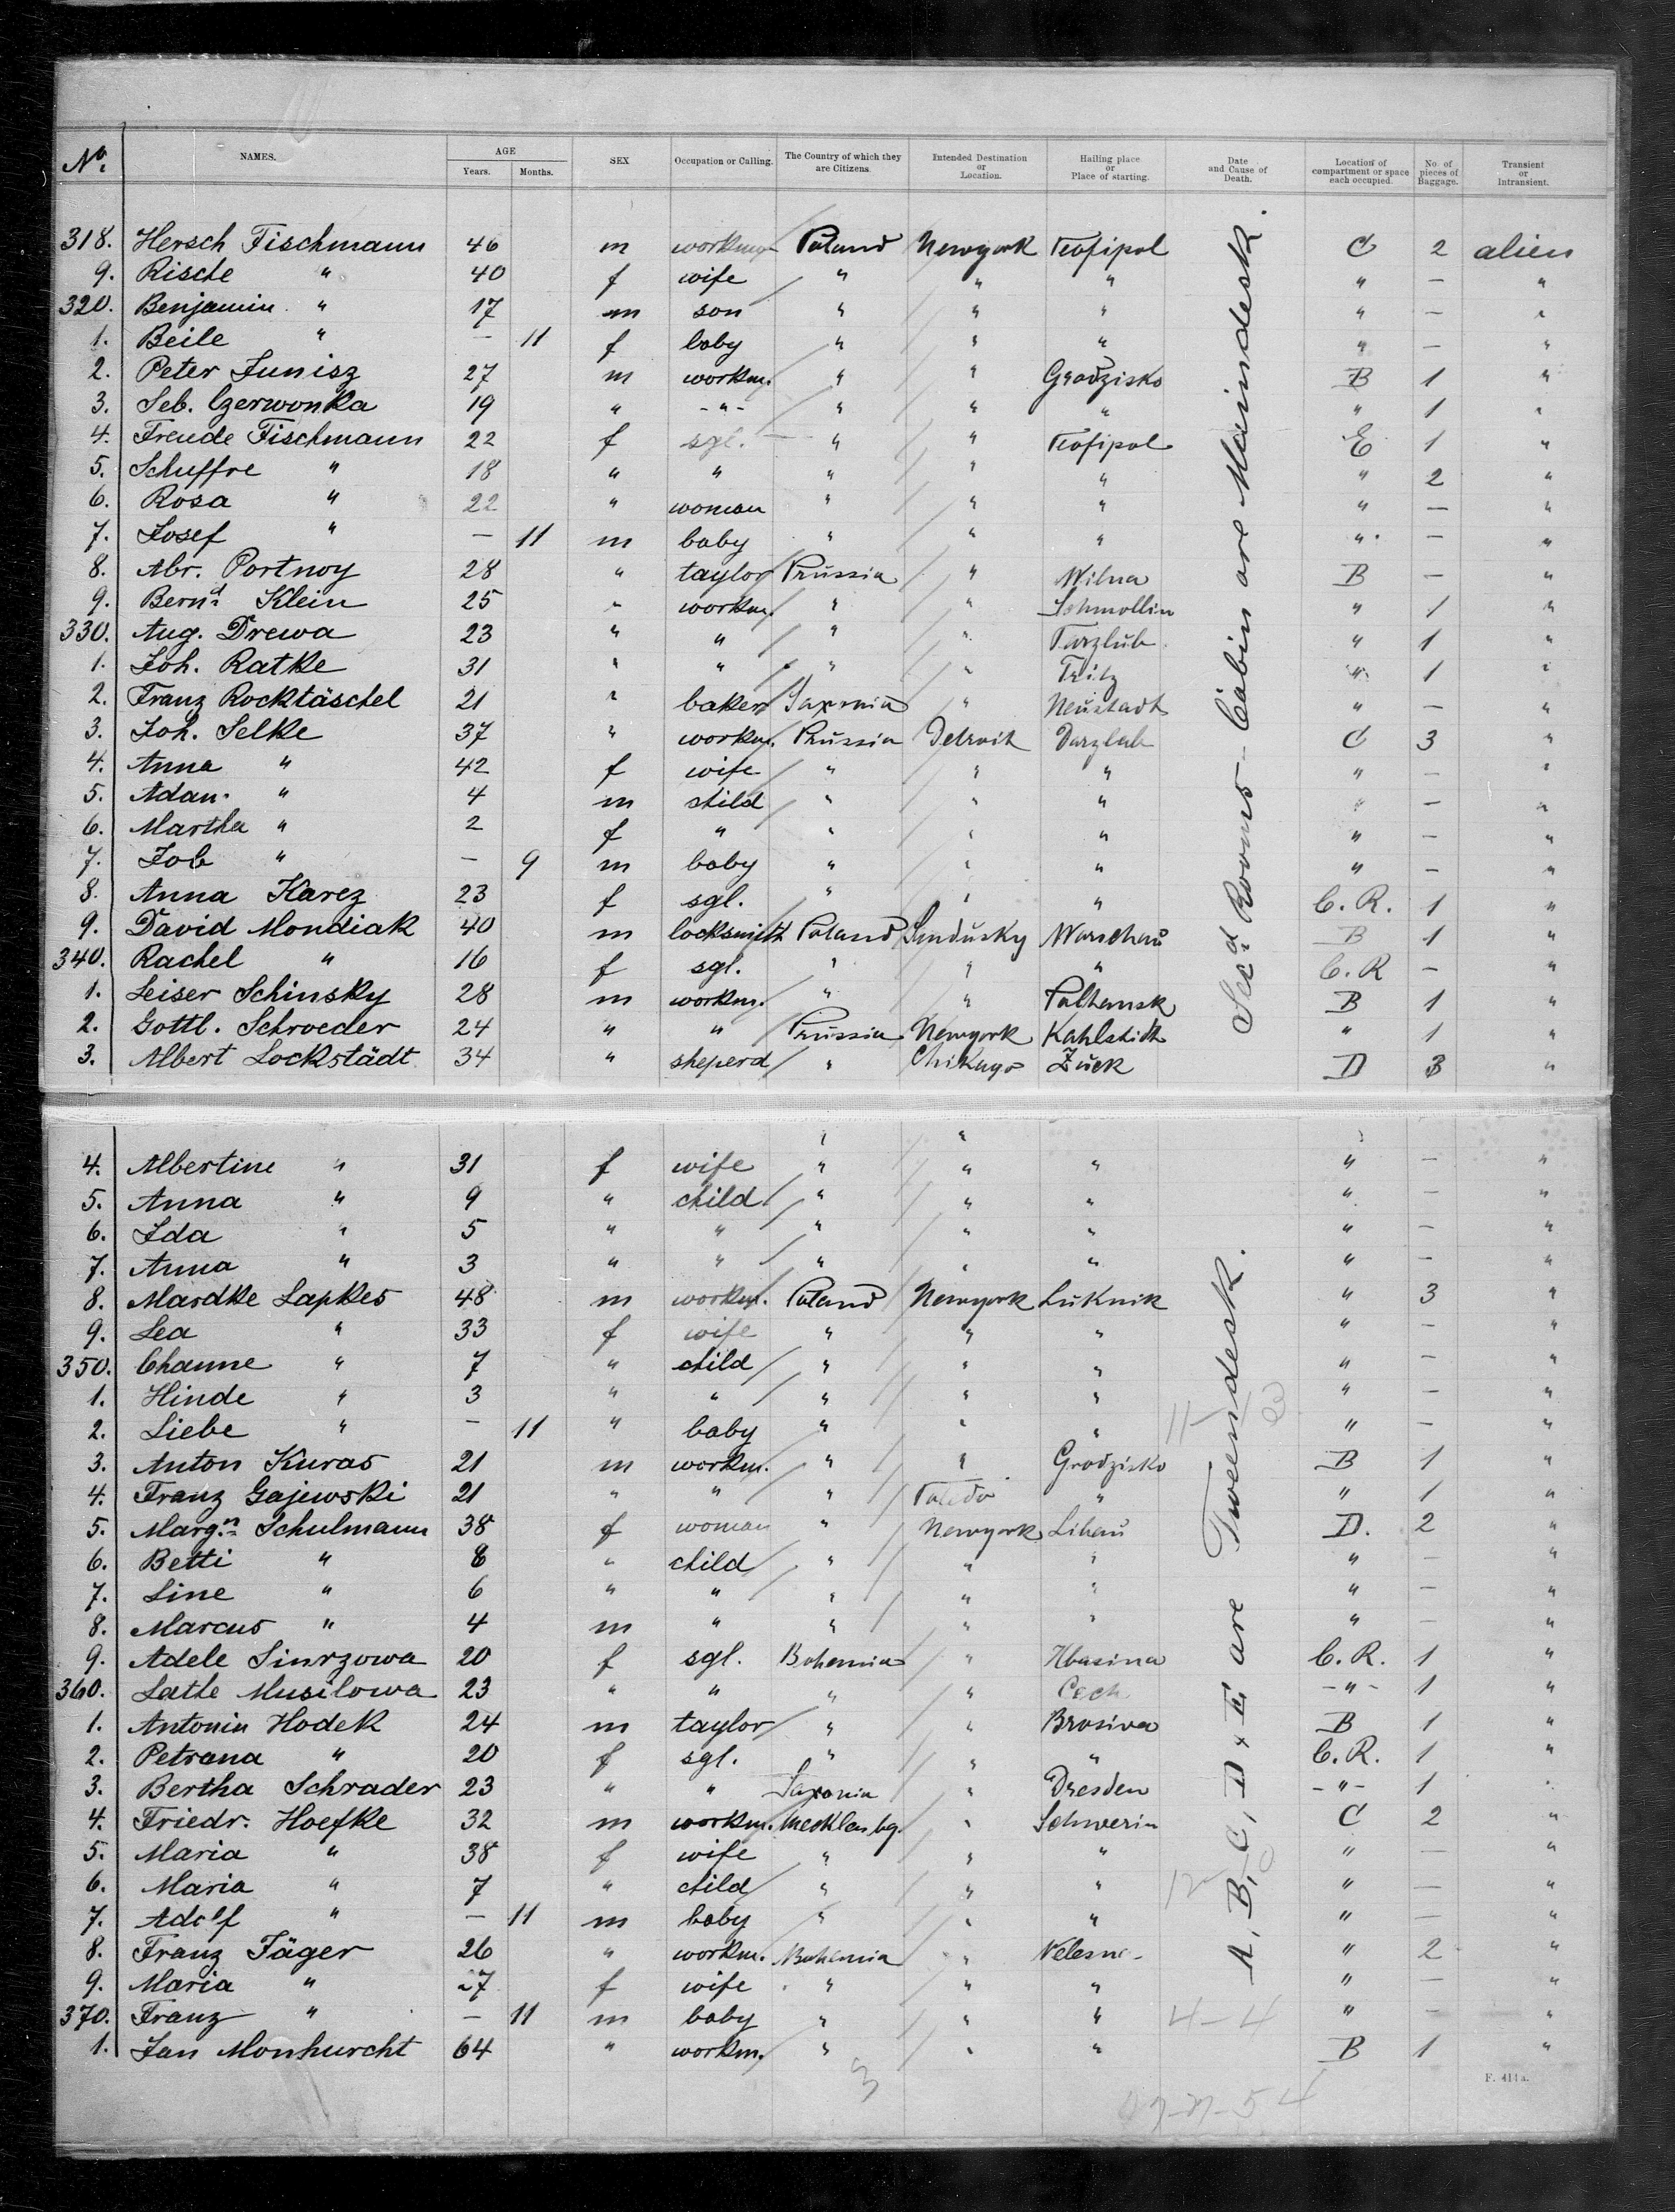 No. NAMES. AGE Years. Months. SEX Occupation or Calling. The Country of which they are Citizens. Intended Destination or Location. Hailing place or Place of starting. Date and Cause of Death. Location of compartment or space each occupied. No. of pieces of Baggage. Transient or Intransient.
318. Hersch Fischmann 46 m workm. Poland Newyork Teofipol C 2 alien
9. Rische " 40 f wife " " " " — "
320. Benjamin " 17 m son " " " " — "
1. Beile " — 11 f baby " " " " — "
2. Peter Junisz 27 m workm. " " Grodzisko B 1 "
3. Seb. Czerwonka 19 " -"- " " " " 1 "
4. Freude Fischmann 22 f sgl. " " Teofipol E 1 "
5. Schuffre " 18 " " " " " " 2 "
6. Rosa " 22 " woman " " " " — "
7. Josef " — 11 m baby " " " " — "
8. Abr. Portnoy 28 " taylor Prussia " Wilna B — "
9. Bernd. Klein 25 " workm. " " Schmollin " 1 "
330. Aug. Drewa 23 " " " " Tarzlub " 1 "
1. Joh. Ratke 31 " " " " " 1 "
2. Franz Rocktäschel 21 " baker Saxonia " Neustadt " — "
3. Joh. Selke 37 " workm. Prussia Detroit Darzlub C 3 "
4. Anna " 42 f wife " " " " — "
5. Adam " 4 m child " " " " — "
6. Martha " 2 f " " " " " — "
7. Job " — 9 m baby " " " " — "
8. Anna Karez 23 f sgl. " " " C. R. 1 "
9. David Mondiak 40 m locksmith Poland Sandusky Warschau B 1 "
340. Rachel " 16 f sgl. " " " C. R — "
1. Leiser Schinsky 28 m workm. " " B 1 "
2. Gottl. Schroeder 24 " " Prussia Newyork Kahlstädt " 1 "
3. Albert Lockstädt 34 " sheperd " Chikago Zuck D 3 "
4. Albertine " 31 f wife " " " " — "
5. Anna " 9 " child " " " " — "
6. Ida " 5 " " " " " " — "
7. Anna " 3 " " " " " " — "
8. Mardke Lapkes 48 m workm. Poland Newyork Luknik " 3 "
9. Lea " 33 f wife " " " " — "
350. Channe " 7 " child " " " " — "
1. Hinde " 3 " " " " " " — "
2. Liebe " — 11 " baby " " " " — "
3. Anton Kuras 21 m workm. " " Grodzisko B 1 "
4. Franz Gajewski 21 " " " Toledo " " 1 "
5. Margn. Schulmann 38 f woman " Newyork Libau D. 2 "
6. Betti " 8 " child " " " " — "
7. Line " 6 " " " " " " — "
8. Marcus " 4 m " " " " " — "
9. Adele Sinrzowa 20 f sgl. Bohemia " Hbasina C. R. 1 "
360. Lathe Musilowa 23 " " " " Cech -"- 1 "
1. Antonin Hodek 24 m taylor " " Brosiva B 1 "
2. Petrana " 20 f sgl. " " " C. R. 1 "
3. Bertha Schrader 23 " " Saxonia " Dresden -"- 1 "
4. Friedr. Hoefke 32 m workm. Mecklenbg. " Schwerin C 2 "
5. Maria " 38 f wife " " " " — "
6. Maria " 7 " child " " " " — "
7. Adolf " — 11 m baby " " " " — "
8. Franz Jäger 26 " workm. Bohemia " " 2 "
9. Maria " 27 f wife " " " " — "
370. Franz " — 11 m baby " " " " — "
1. Jan Monhurcht 64 " workm. " " " B 1 "
Secd. Rooms - Cabin are Maindesk.
A, B, C, D & E are Tweendesk.
4-4
3
F. 411a.